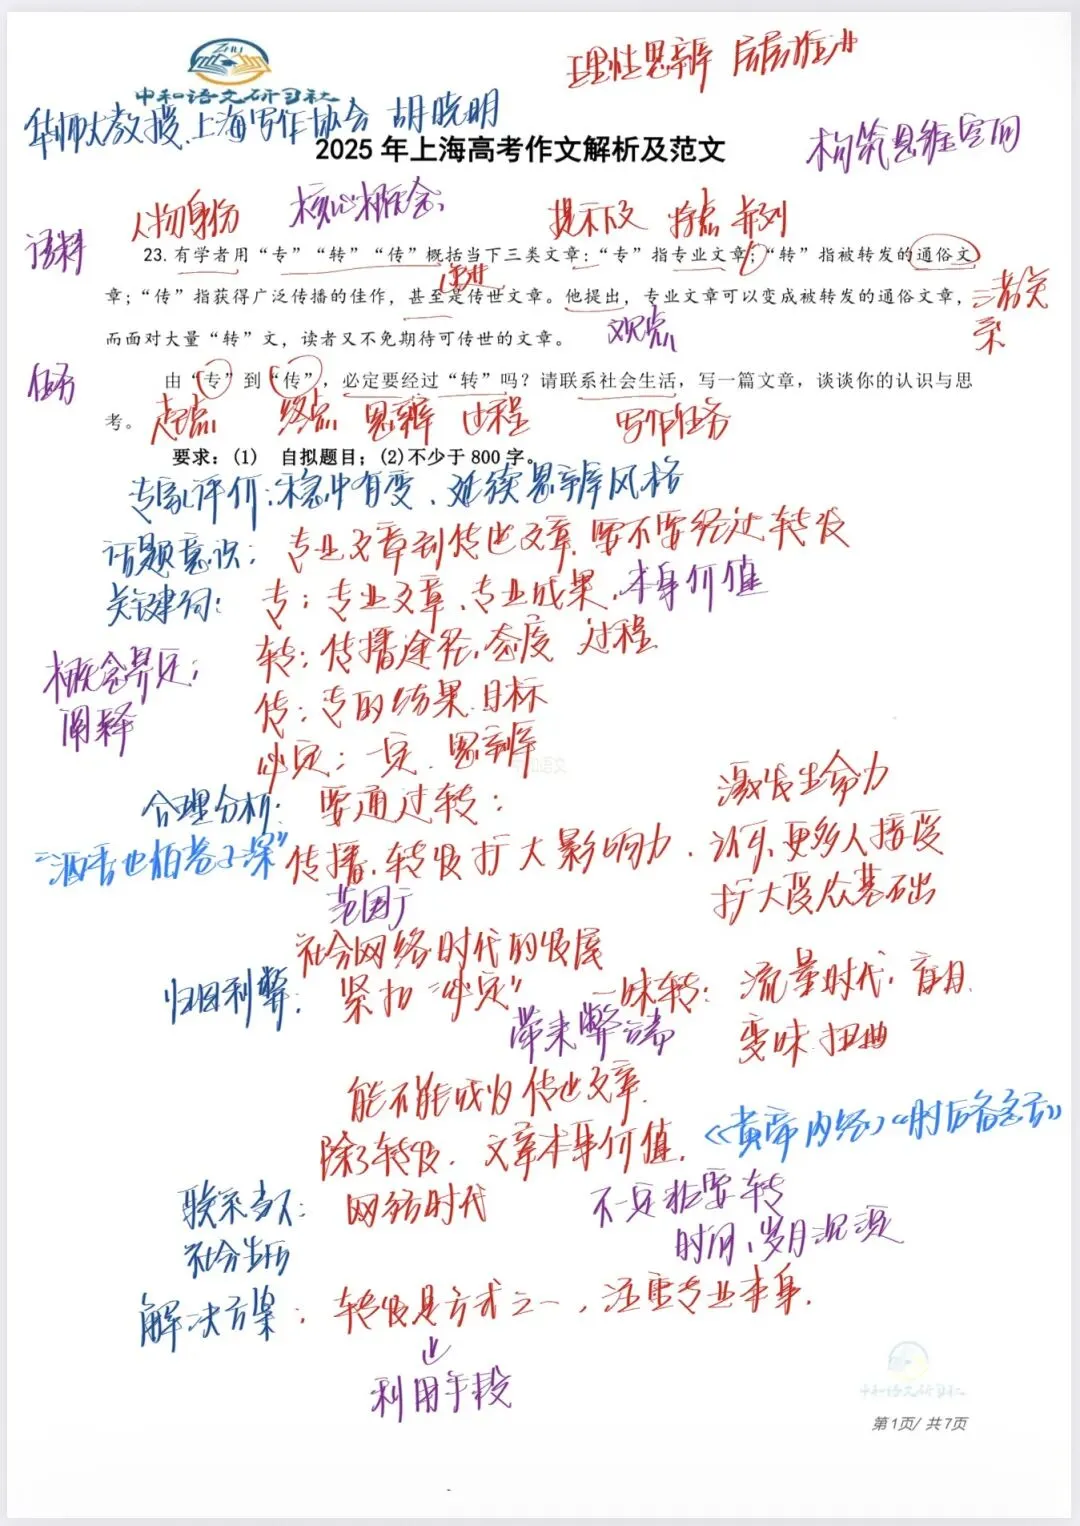 理性思辨 层层推进
ZHYJ
中和语文研习社
华师大教授、上海写作协会 胡晓明
2025 年上海高考作文解析及范文
构筑思维空间
人物身份 核心概念 提示下文 特点 并列
语料
23. 有学者用“专”“转”“传”概括当下三类文章：“专”指专业文章；“转”指被转发的通俗文
递进
章；“传”指获得广泛传播的佳作，甚至是传世文章。他提出，专业文章可以变成被转发的通俗文章，
三者关系
而面对大量“转”文，读者又不免期待可传世的文章。
观点
任务
由“专”到“传”，必定要经过“转”吗？请联系社会生活，写一篇文章，谈谈你的认识与思
考。
起点 终点 思辨 过程 写作任务
要求：(1) 自拟题目；(2)不少于 800 字。
专家评价：稳中有变、延续思辨风格
话题意识： 专业文章到传世文章，要不要经过转发
关键词： 专：专业文章、专业成果，本身价值
概念界定； 转：传播途径，态度 过程
阐释 传：专的结果 目标
必定：一定 思辨
合理分析： 要通过转： 激发生命力
“酒香也怕巷子深” 传播，转发扩大影响力、认可、更多人接受
范围广 扩大受众基础
社会网络时代的发展
归因利弊： 紧扣“必定” 一味转：流量时代，盲目
带来弊端 变味 扭曲
能不能成为传世文章
除了转发，文章本身价值，《黄帝内经》《肘后备急方》
联系当下： 网络时代 不一定非要转
社会生活 时间，岁月沉淀
解决方案： 转发是方式之一，注重专业本身．
利用手段
中和语文研习社
第1页/ 共7页